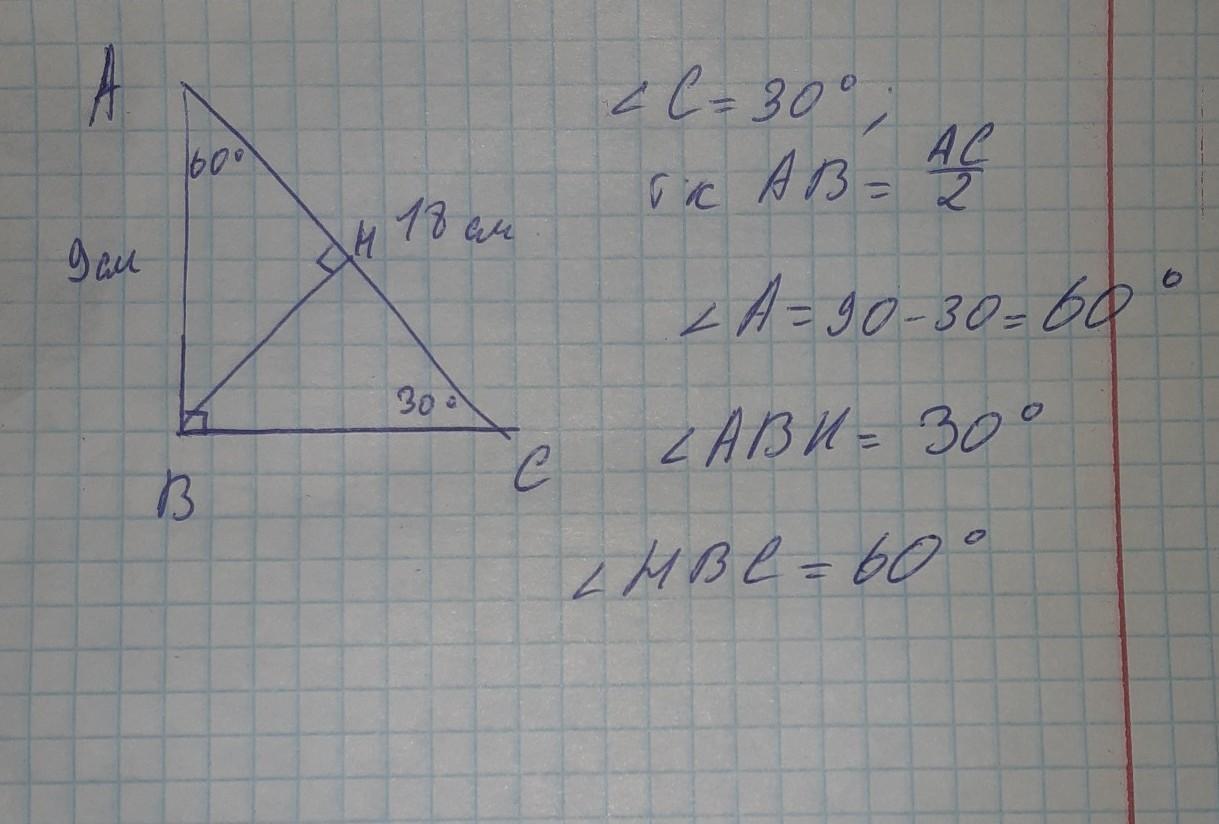 A
60°
H
18 см
9 см
30°
B
C
∠ C = 30°,
тк AB = AC/2
∠ A = 90 - 30 = 60°
∠ ABH = 30°
∠ HBC = 60°